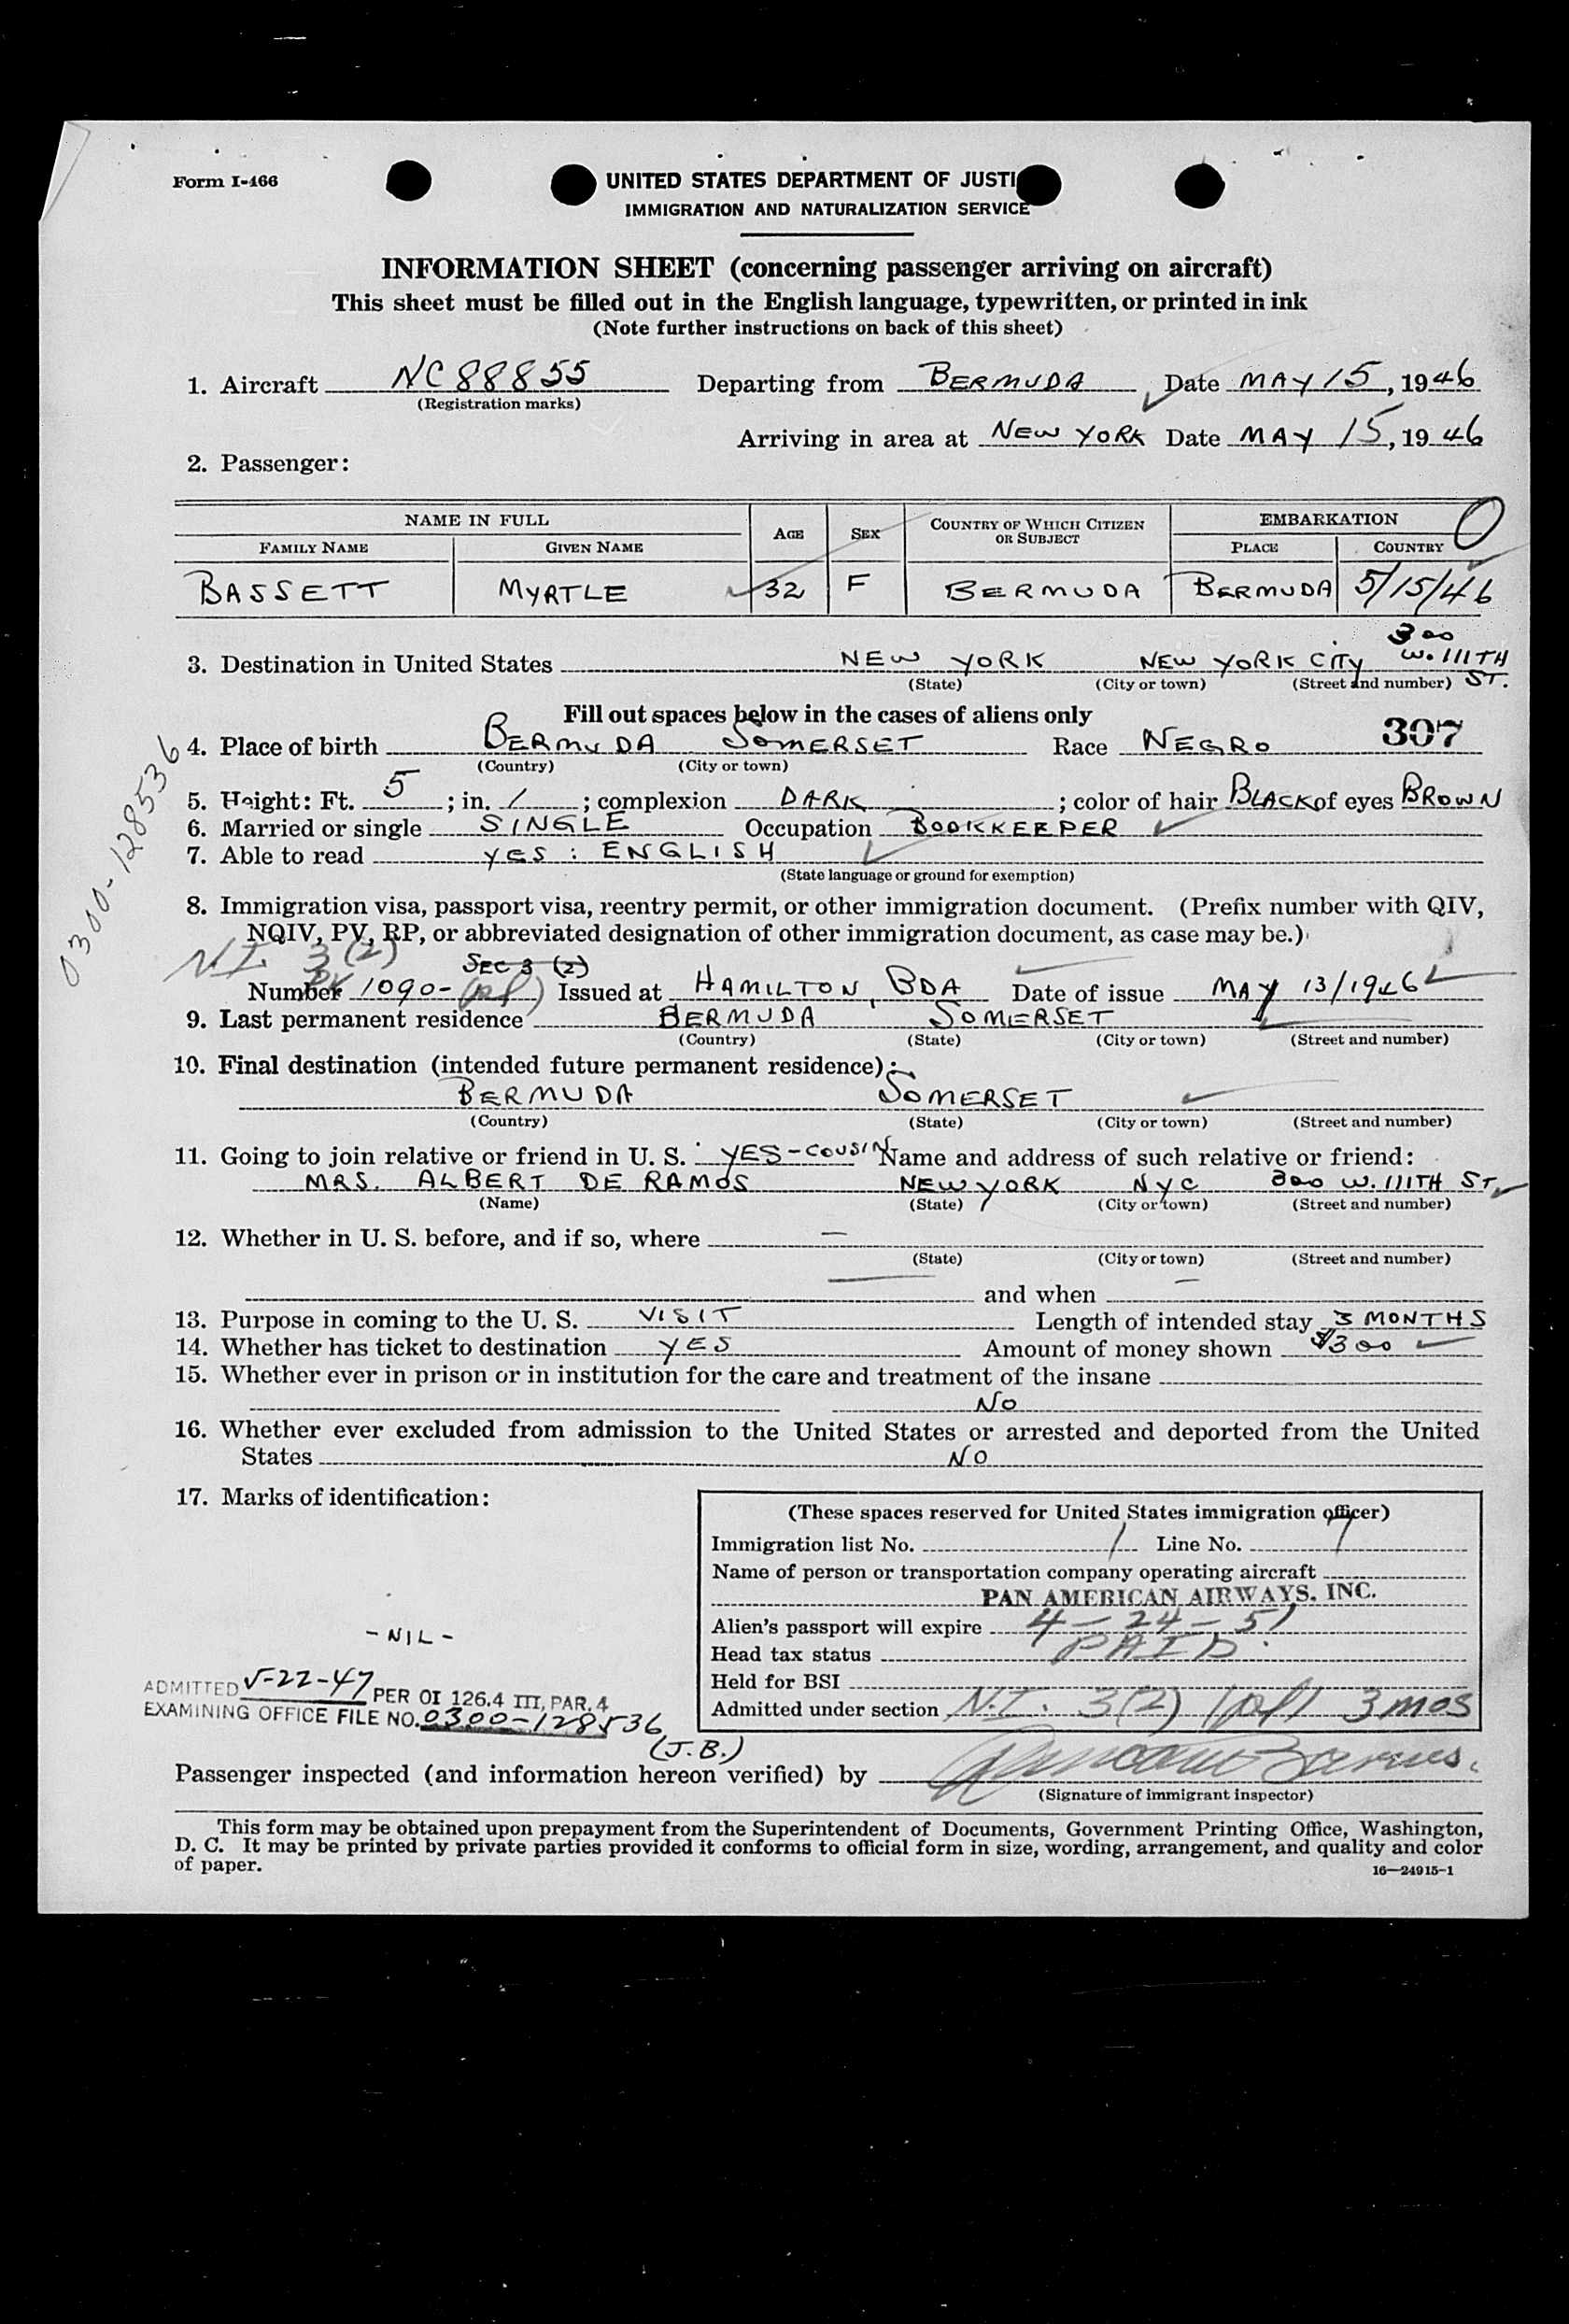 Form I-466
UNITED STATES DEPARTMENT OF JUSTI
IMMIGRATION AND NATURALIZATION SERVICE
INFORMATION SHEET (concerning passenger arriving on aircraft)
This sheet must be filled out in the English language, typewritten, or printed in ink
(Note further instructions on back of this sheet)
1. Aircraft NC88855 Departing from BERMUDA Date MAY 15, 1946
(Registration marks)
Arriving in area at NEW YORK Date MAY 15, 1946
2. Passenger:
NAME IN FULL AGE SEX COUNTRY OF WHICH CITIZEN OR SUBJECT EMBARKATION 0
FAMILY NAME GIVEN NAME PLACE COUNTRY
BASSETT MYRTLE 32 F BERMUDA BERMUDA 5/15/46
300
3. Destination in United States NEW YORK NEW YORK CITY W. 111TH ST.
(State) (City or town) (Street and number)
Fill out spaces below in the cases of aliens only
4. Place of birth BERMUDA SOMERSET Race NEGRO 307
(Country) (City or town)
0300-128536
5. Height: Ft. 5; in. 1; complexion DARK; color of hair BLACK of eyes BROWN
6. Married or single SINGLE Occupation BOOKKEEPER
7. Able to read YES : ENGLISH
(State language or ground for exemption)
8. Immigration visa, passport visa, reentry permit, or other immigration document. (Prefix number with QIV,
NQIV, PV, RP, or abbreviated designation of other immigration document, as case may be.)
N.I. 3(2) SEC 3 (2)
Number PV 1090-(pl) Issued at HAMILTON, BDA Date of issue MAY 13/1946
9. Last permanent residence BERMUDA SOMERSET
(Country) (State) (City or town) (Street and number)
10. Final destination (intended future permanent residence):
BERMUDA SOMERSET
(Country) (State) (City or town) (Street and number)
11. Going to join relative or friend in U. S. YES-COUSIN Name and address of such relative or friend:
MRS. ALBERT DE RAMOS NEW YORK NYC 300 W. 111TH ST.
(Name) (State) (City or town) (Street and number)
12. Whether in U. S. before, and if so, where —
(State) (City or town) (Street and number)
— and when —
13. Purpose in coming to the U. S. VISIT Length of intended stay 3 MONTHS
14. Whether has ticket to destination YES Amount of money shown $300
15. Whether ever in prison or in institution for the care and treatment of the insane
NO
16. Whether ever excluded from admission to the United States or arrested and deported from the United
States NO
17. Marks of identification:
- NIL -
(These spaces reserved for United States immigration officer)
Immigration list No. 1 Line No. 7
Name of person or transportation company operating aircraft
PAN AMERICAN AIRWAYS, INC.
Alien's passport will expire 4-24-51
Head tax status PAID.
Held for BSI
Admitted under section N.I. 3(2) (pl) 3 mos
ADMITTED 5-22-47 PER OI 126.4 III, PAR. 4
EXAMINING OFFICE FILE NO. 0300-128536
(J.B.)
Passenger inspected (and information hereon verified) by
(Signature of immigrant inspector)
This form may be obtained upon prepayment from the Superintendent of Documents, Government Printing Office, Washington,
D. C. It may be printed by private parties provided it conforms to official form in size, wording, arrangement, and quality and color
of paper.
16—24915-1